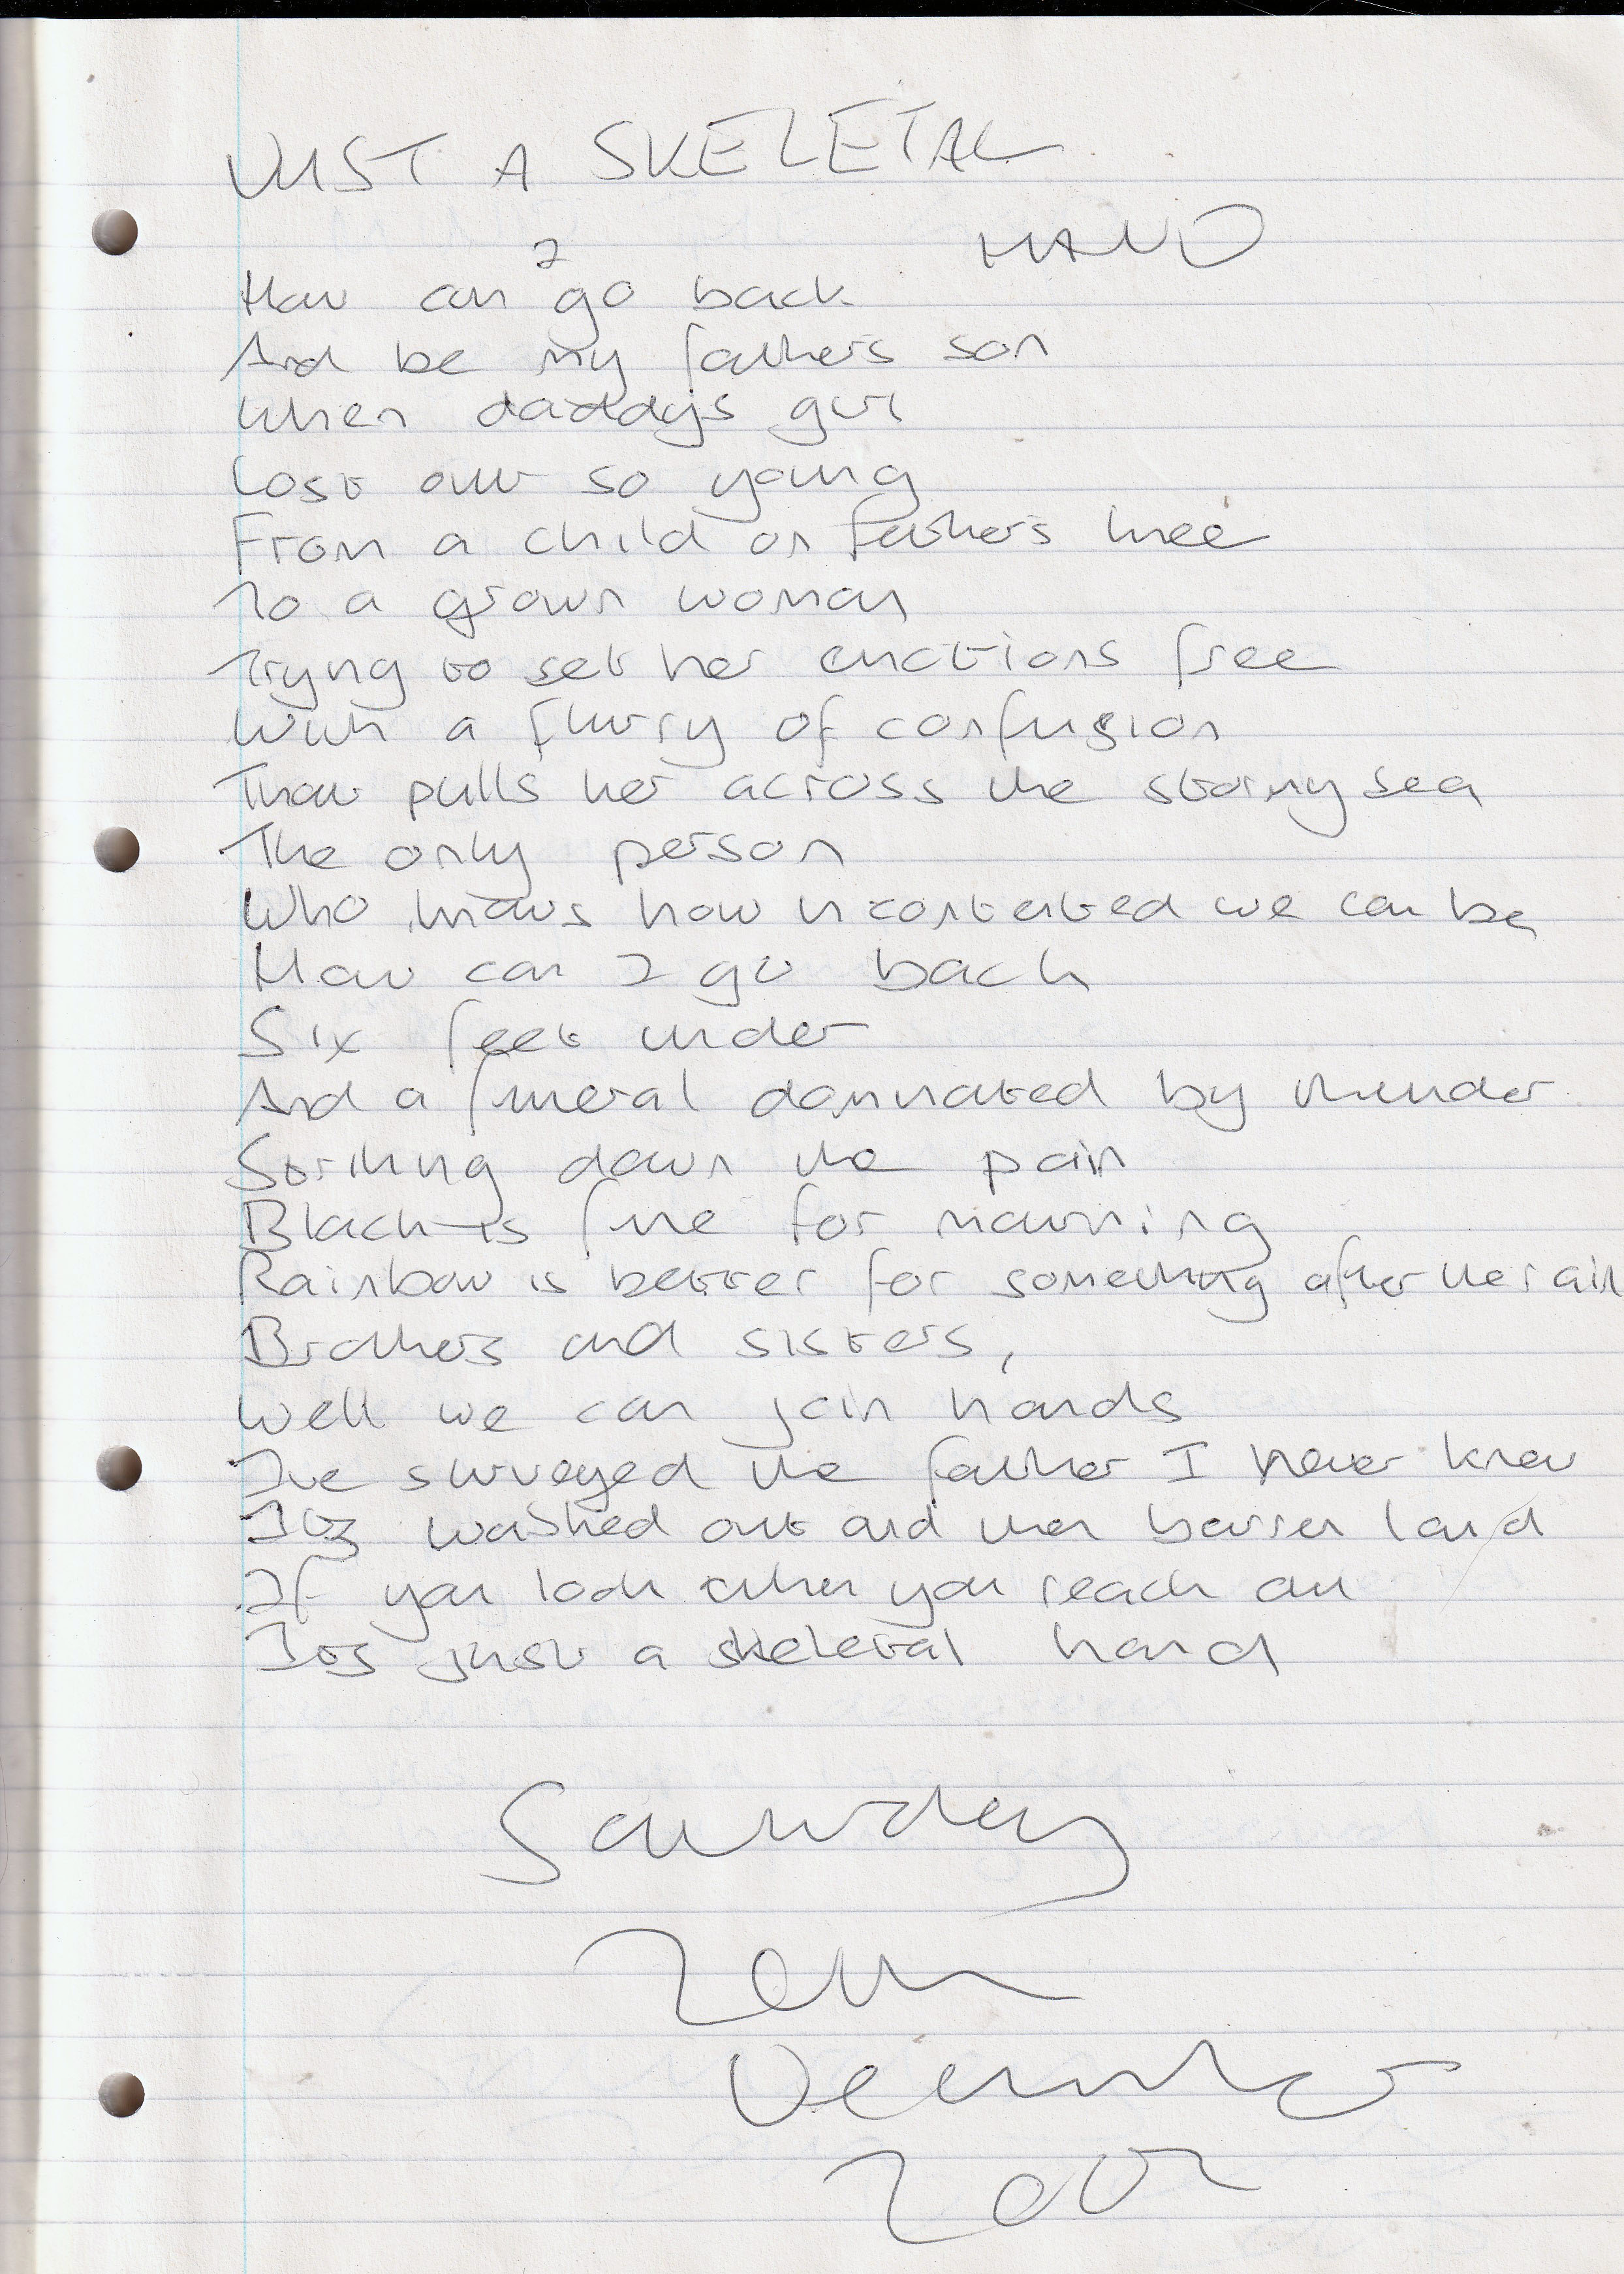 JUST A SKELETAL
HAND
How can I go back
And be my fathers son
When daddys girl
Lost out so young
From a child on fathers knee
To a grown woman
Trying to set her emotions free
With a flurry of confusion
That pulls her across the stormy sea
The only person
Who knows how contented we can be
How can I go back
Six feet under
And a funeral dominated by thunder
Striking down the pain
Black is fine for mourning
Rainbow is better for something after the rain
Brothers and sisters,
Well we can join hands
Ive surveyed the father I never knew
Its washed out and then barren land
If you look when you reach out
Its just a skeletal hand
Saturday
December
2002